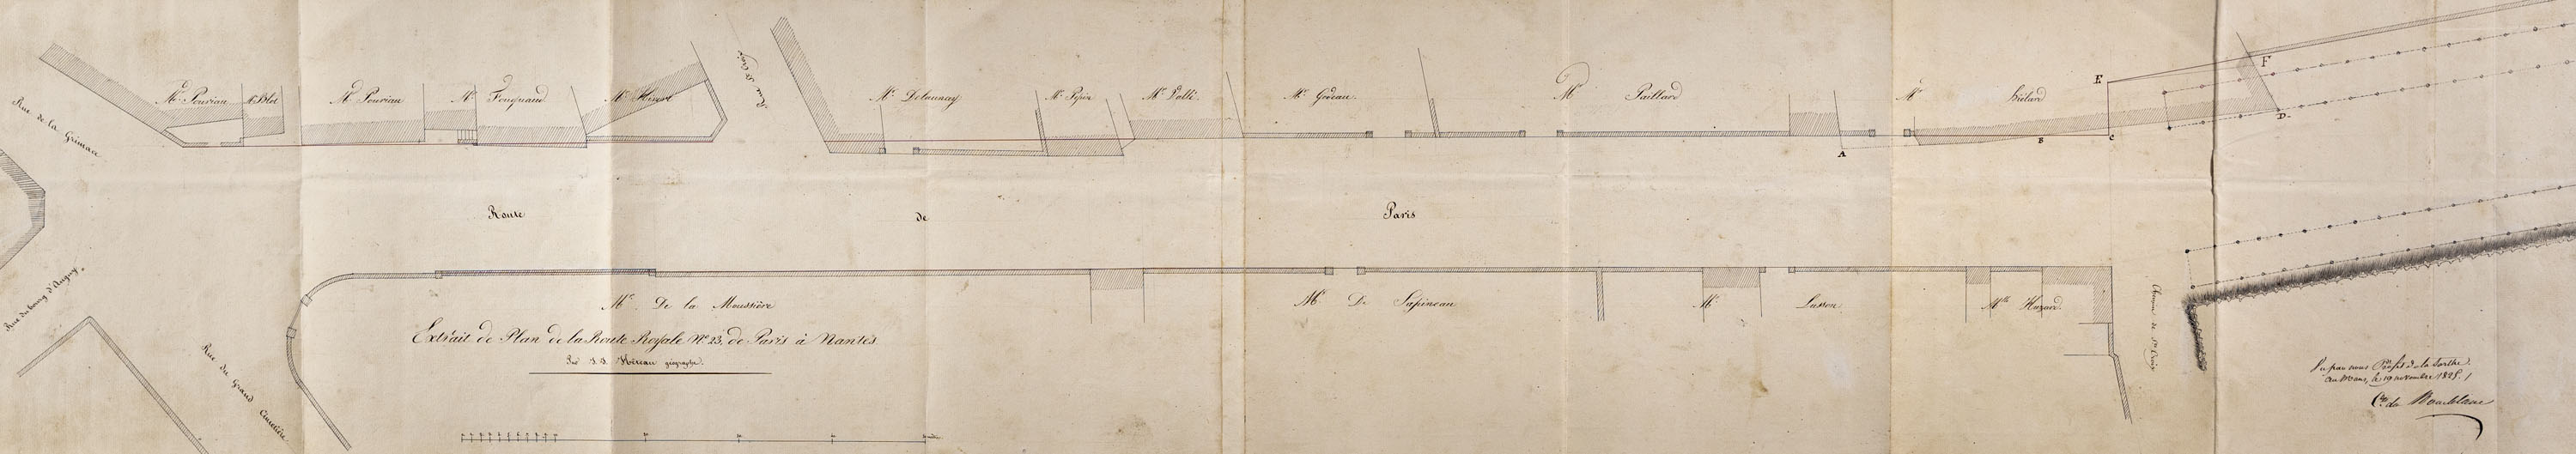 Rue de la Grimace
Mr. Pourian
Mr. Blot
Mr. Pouriau
Mr. Fouquaud
Mr. Hivert
Rue Ste. Croix
Mr. Delaunay
Mr. Pepin
Mr. Vallé
Mr. Gréeau.
Mr. Paillard
Mr. Liétard
A
B
C
D.
E
F
Route de Paris
Rue du bourg d'Anguy.
Rue du Grand Cimetière
Mr. De la Moussière
Mr. De Lapineau
Mr. Lusson.
Mlle. Huzard.
Chemin de Ste. Croix
Extrait de Plan de la Route Royale No. 23, de Paris à Nantes
Par géographe.
Vu par nous Préfet de la Sarthe.
au Mans, le 19 novembre 1825.